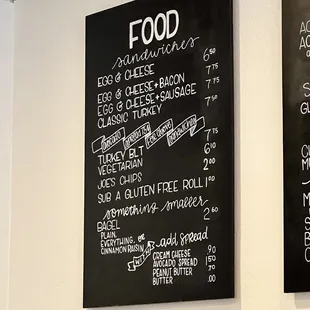 FOOD
sandwiches
EGG & CHEESE 6.50
EGG & CHEESE+BACON 7.75
EGG & CHEESE+SAUSAGE 7.75
CLASSIC TURKEY 7.50
TURKEY BLT 7.75
VEGETARIAN 6.10
JOE'S CHIPS 2.00
SUB A GLUTEN FREE ROLL 1.00
something smaller
BAGEL 2.60
PLAIN,
EVERYTHING, OR
CINNAMON RAISIN
add spread
CREAM CHEESE .90
AVOCADO SPREAD 1.50
PEANUT BUTTER
BUTTER